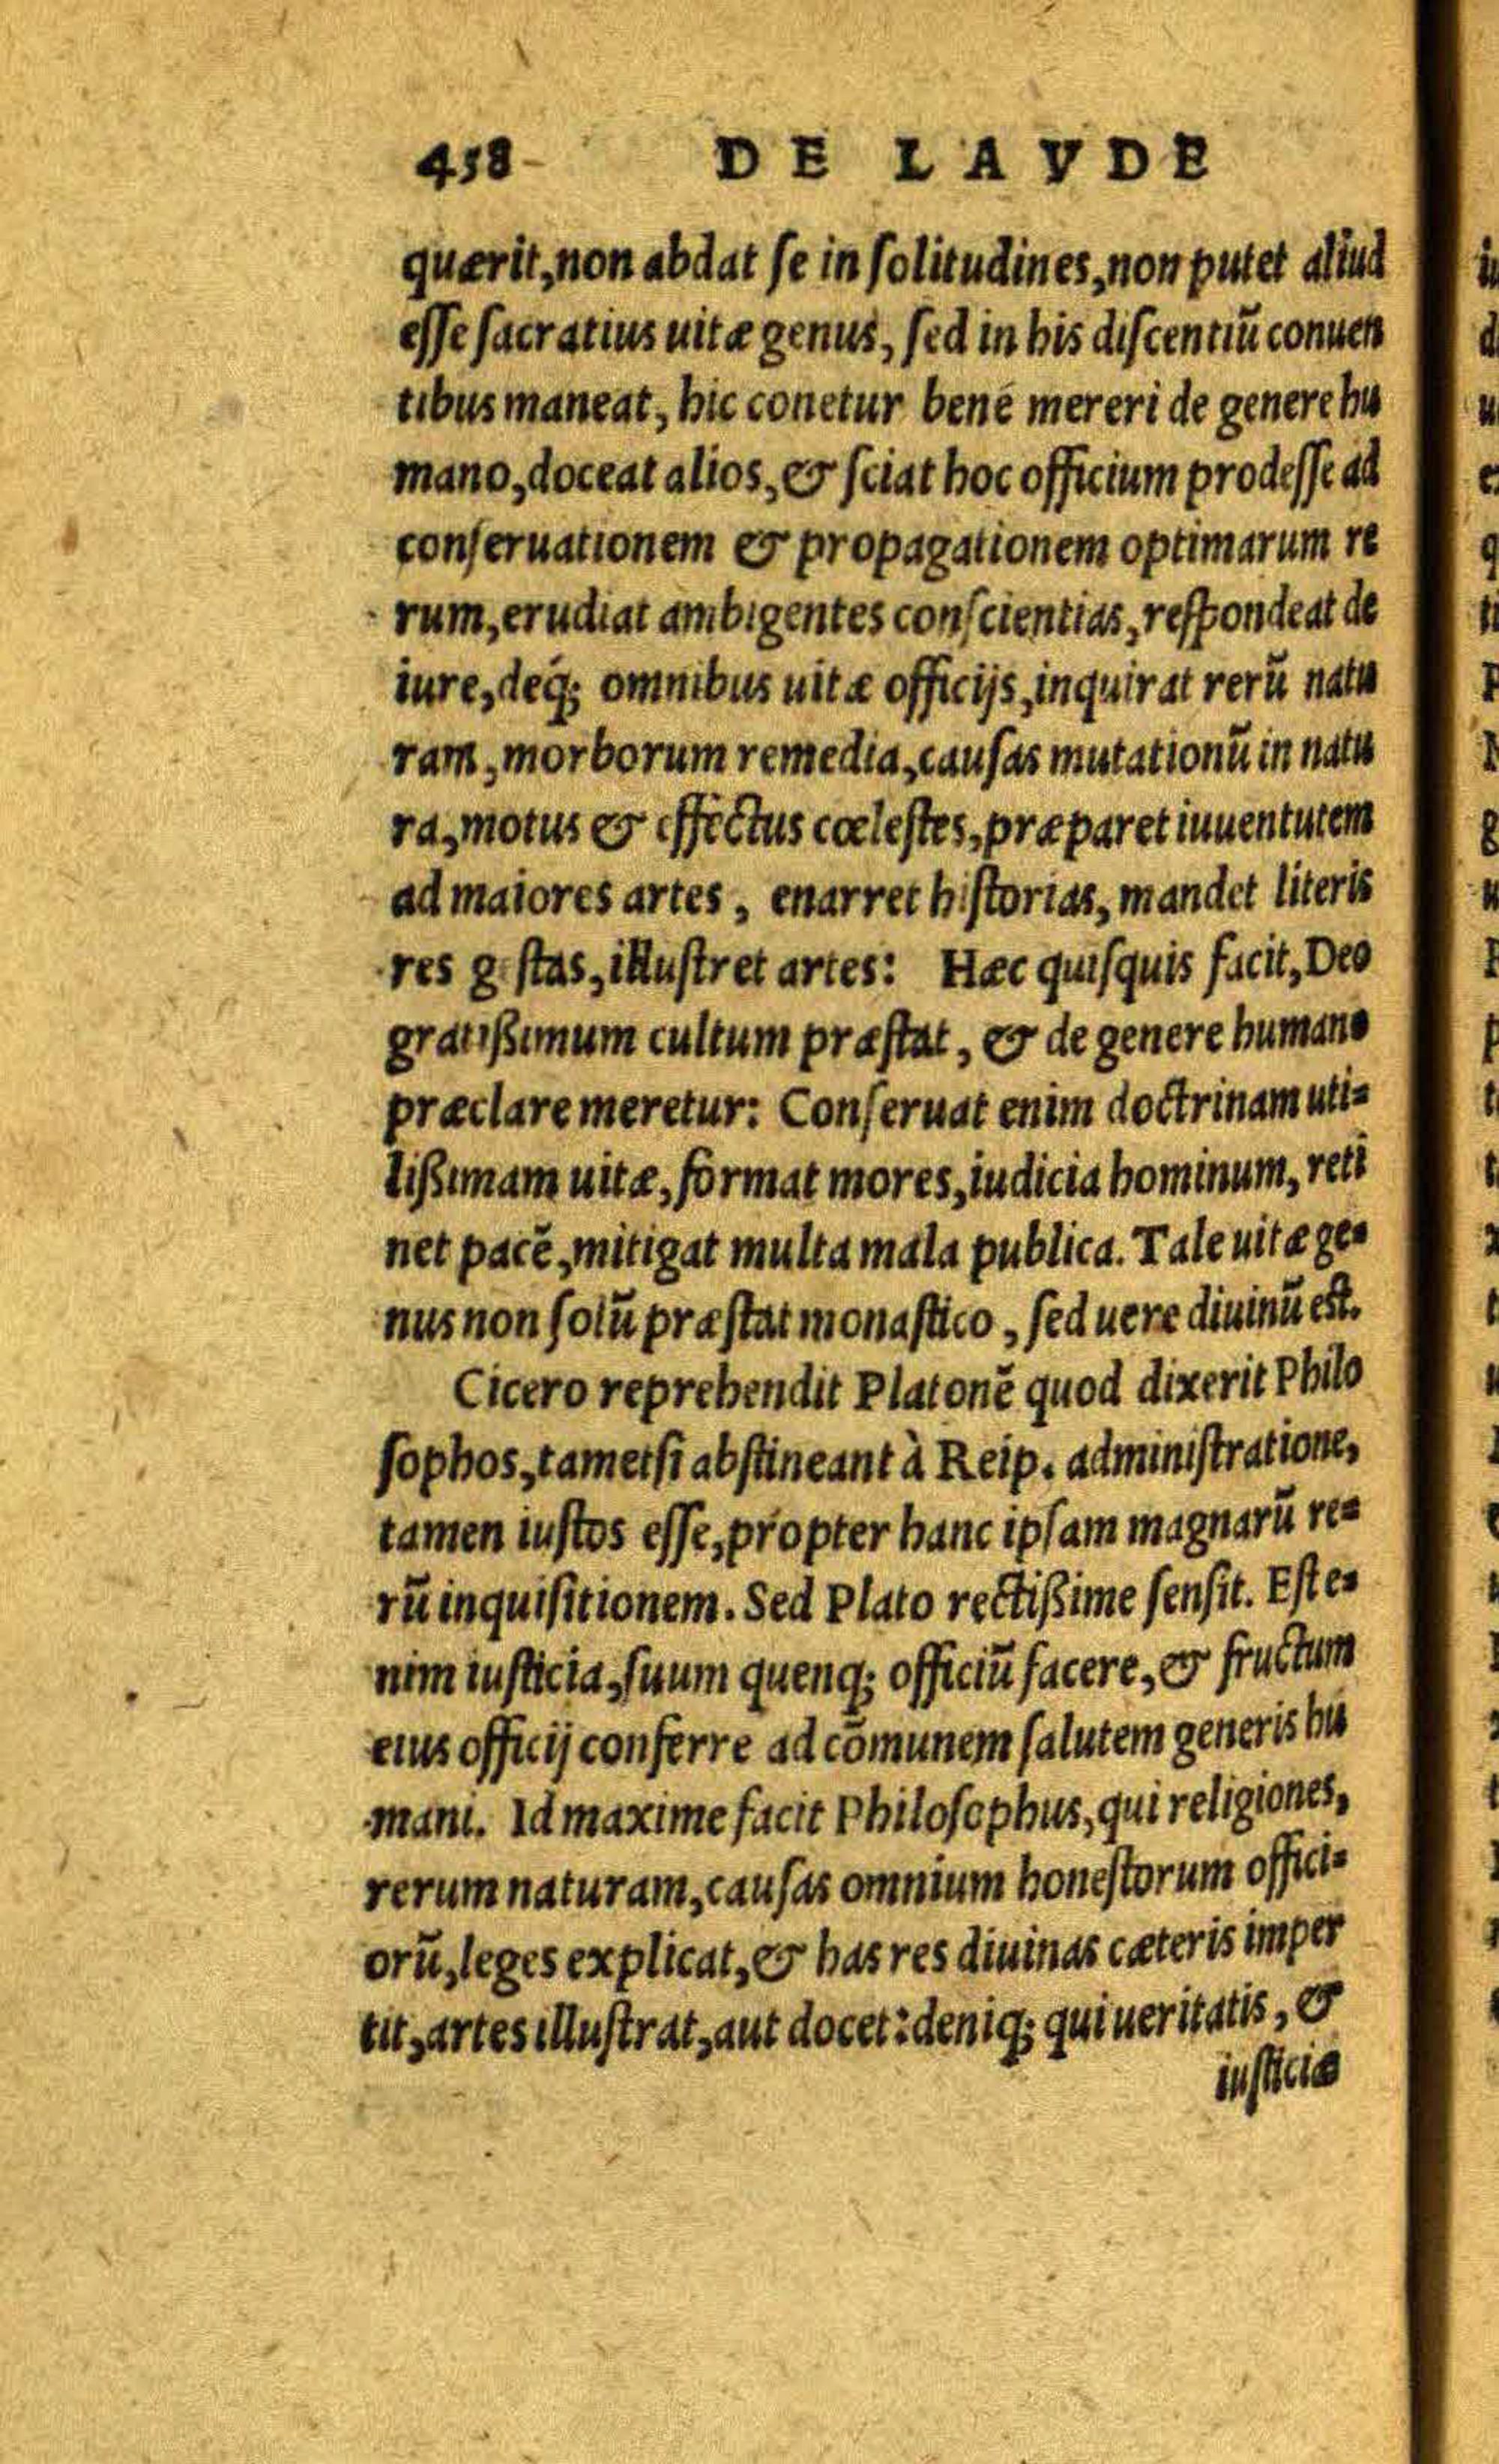 458 DE LAVDE
quærit, non abdat ſe in ſolitudines, non putet aliud
eſſe ſacratius uitæ genus, ſed in his diſcentiũ conuen
tibus maneat, hic conetur bené mereri de genere hu
mano, doceat alios, & ſciat hoc officium prodeſſe ad
conſeruationem & propagationem optimarum re
rum, erudiat ambigentes conſcientias, reſpondeat de
iure, deq́; omnibus uitæ officijs, inquirat rerũ natu
ram, morborum remedia, cauſas mutationũ in natu
ra, motus & effectus cœleſtes, præparet iuuentutem
ad maiores artes, enarret hiſtorias, mandet literis
res geſtas, illuſtret artes: Hæc quiſquis facit, Deo
gratißimum cultum præſtat, & de genere humano
præclare meretur: Conſeruat enim doctrinam uti=
lißimam uitæ, format mores, iudicia hominum, reti
net pacẽ, mitigat multa mala publica. Tale uitæ ge=
nus non ſolũ præſtat monaſtico, ſed uere diuinũ eſt.
Cicero reprehendit Platonẽ quod dixerit Philo
ſophos, tametſi abſtineant à Reip. adminiſtratione,
tamen iuſtos eſſe, propter hanc ipſam magnarũ re=
rũ inquiſitionem. Sed Plato rectißime ſenſit. Eſt e=
nim iuſticia, ſuum quenq; officiũ facere, & fructum
eius officij conferre ad cõmunem ſalutem generis hu
mani. Id maxime facit Philoſophus, qui religiones,
rerum naturam, cauſas omnium honeſtorum offici=
orũ, leges explicat, & has res diuinas cæteris imper
tit, artes illuſtrat, aut docet: deniq; qui ueritatis, &
iuſticiæ